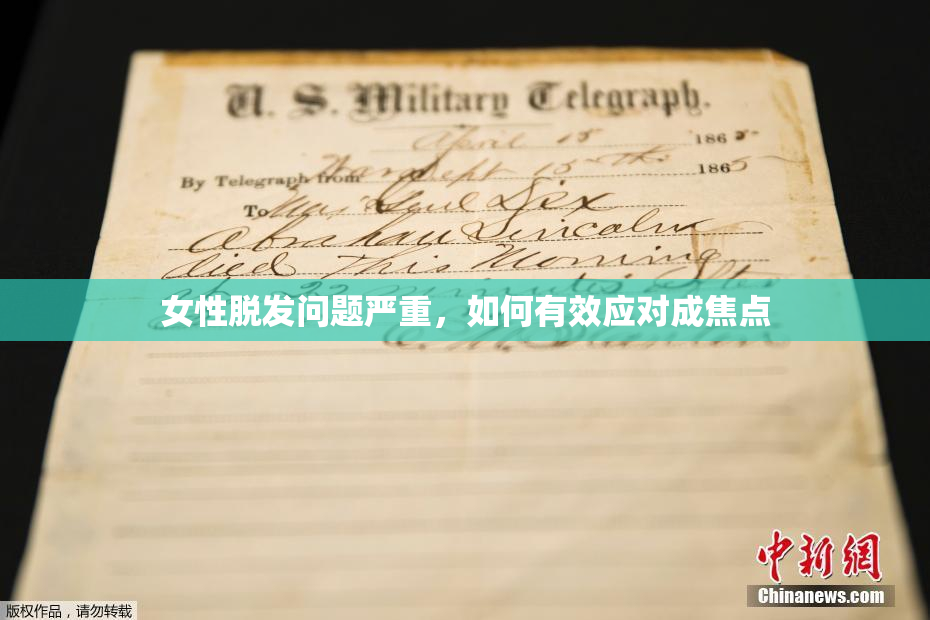 U. S. Military Telegraph.
April 15 1865
By Telegraph from War Dept 15th 1865
To Maj Genl Dix
Abraham Lincoln
died This Morning
at 22 minutes after
女性脱发问题严重，如何有效应对成焦点
E. M. Stanton
中新网
Chinanews.com
版权作品，请勿转载